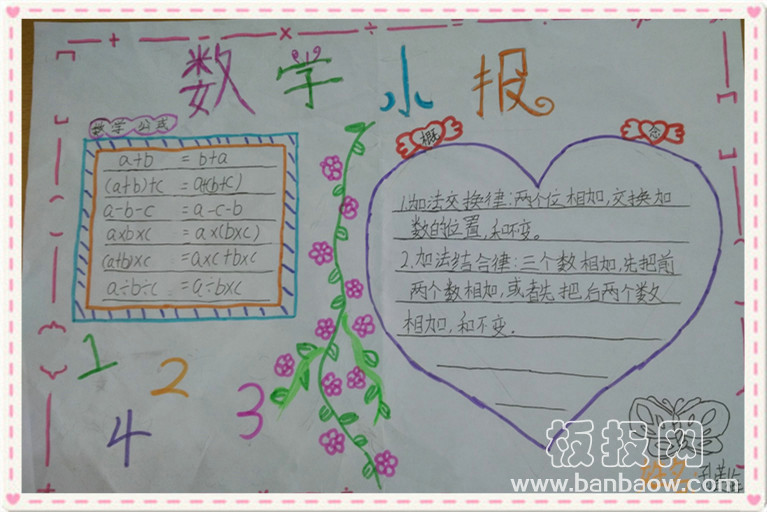 数学小报
数学公式
a+b = b+a
(a+b)+c = a+(b+c)
a-b-c = a-c-b
a×b×c = a×(b×c)
(a+b)×c = a×c+b×c
a÷b÷c = a÷b×c
概念
1.加法交换律:两个位相加,交换加
数的位置,和不变。
2.加法结合律:三个数相加,先把前
两个数相加,或者先把后两个数
相加,和不变.
1
2
3
4
板报网
www.banbaow.com